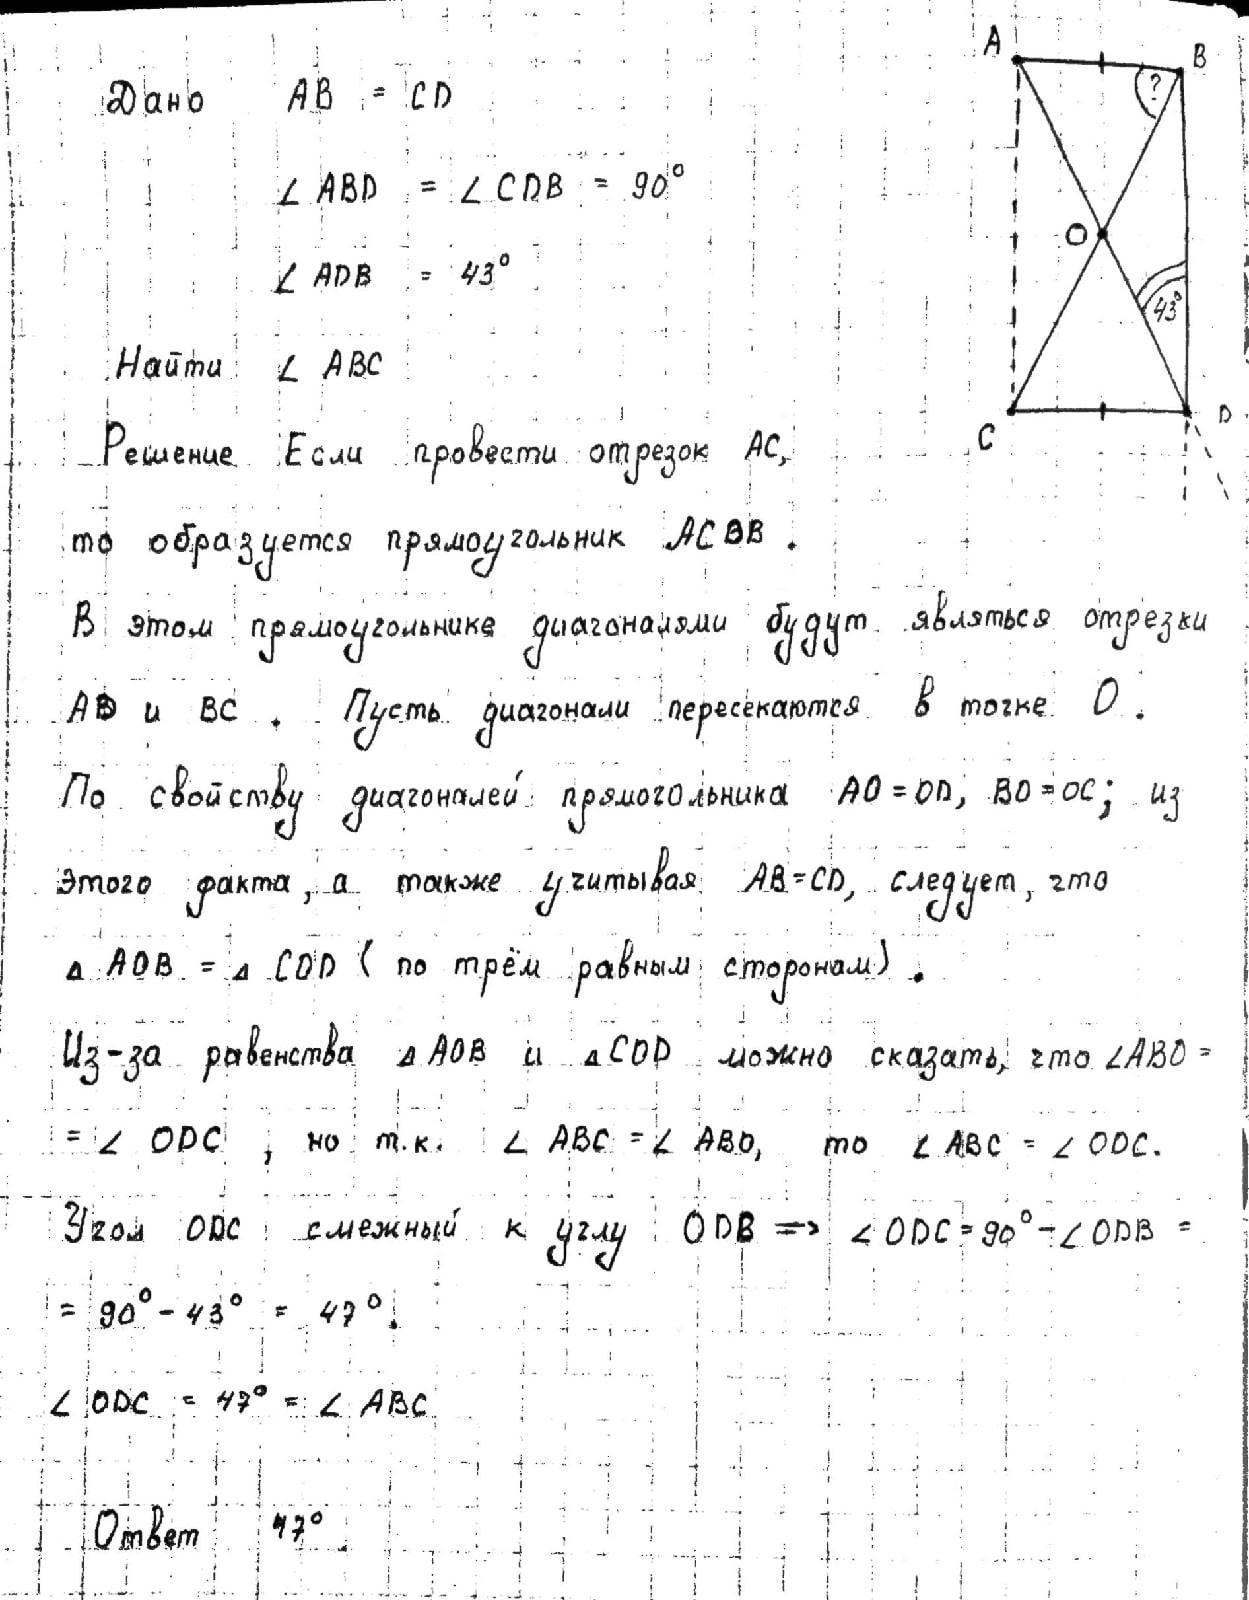 Дано AB = CD
∠ ABD = ∠ CDB = 90°
∠ ADB = 43°
Найти ∠ ABC
Решение Если провести отрезок AC,
то образуется прямоугольник ACDB.
В этом прямоугольнике диагоналями будут являться отрезки
AD и BC. Пусть диагонали пересекаются в точке O.
По свойству диагоналей прямогольника AO = OD, BO = OC; из
этого факта, а также учитывая AB = CD, следует, что
△ AOB = △ COD (по трём равным сторонам).
Из-за равенства △ AOB и △ COD можно сказать, что ∠ABO =
= ∠ ODC, но т.к. ∠ ABC = ∠ ABO, то ∠ ABC = ∠ ODC.
Угол ODC смежный к углу ODB => ∠ ODC = 90° - ∠ ODB =
= 90° - 43° = 47°.
∠ ODC = 47° = ∠ ABC
Ответ 47°
A
B
?
O
43°
C
D